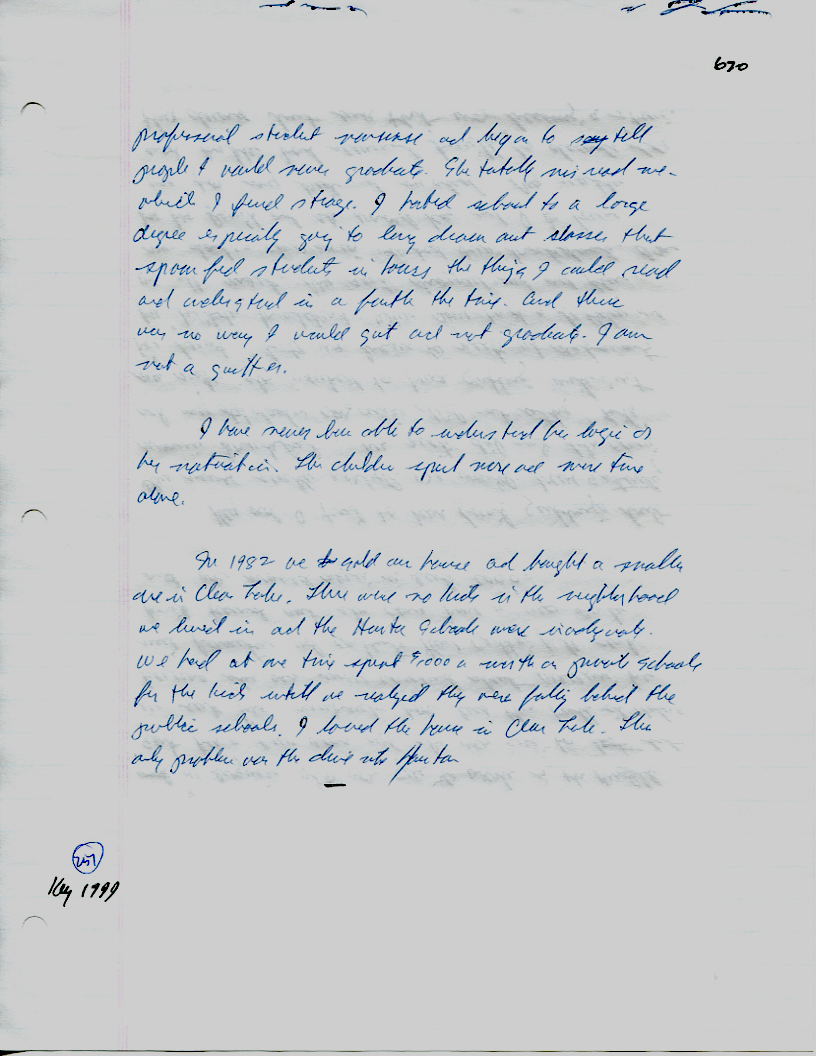 670
professional student nonsense and began to say tell
people I would never graduate. She totally misread me-
which I find strange. I hated school to a large
degree especially going to long drawn out classes that
spoon fed students in hours the things I could read
and understand in a fourth the time. And there
was no way I would quit and not graduate. I am
not a quitter.
I have never been able to understand her logic or
her motivation. The children spent more and more time
alone.
In 1982 we sold our house and bought a smaller
one in Clear Lake. There were no kids in the neighborhood
we lived in and the Houston Schools were inadequate.
We had at one time spent $1000 a month on private schools
for the kids until we realized they were falling behind the
public schools. I loved the house in Clear Lake. The
only problem was the drive into Houston
251
Key 1999